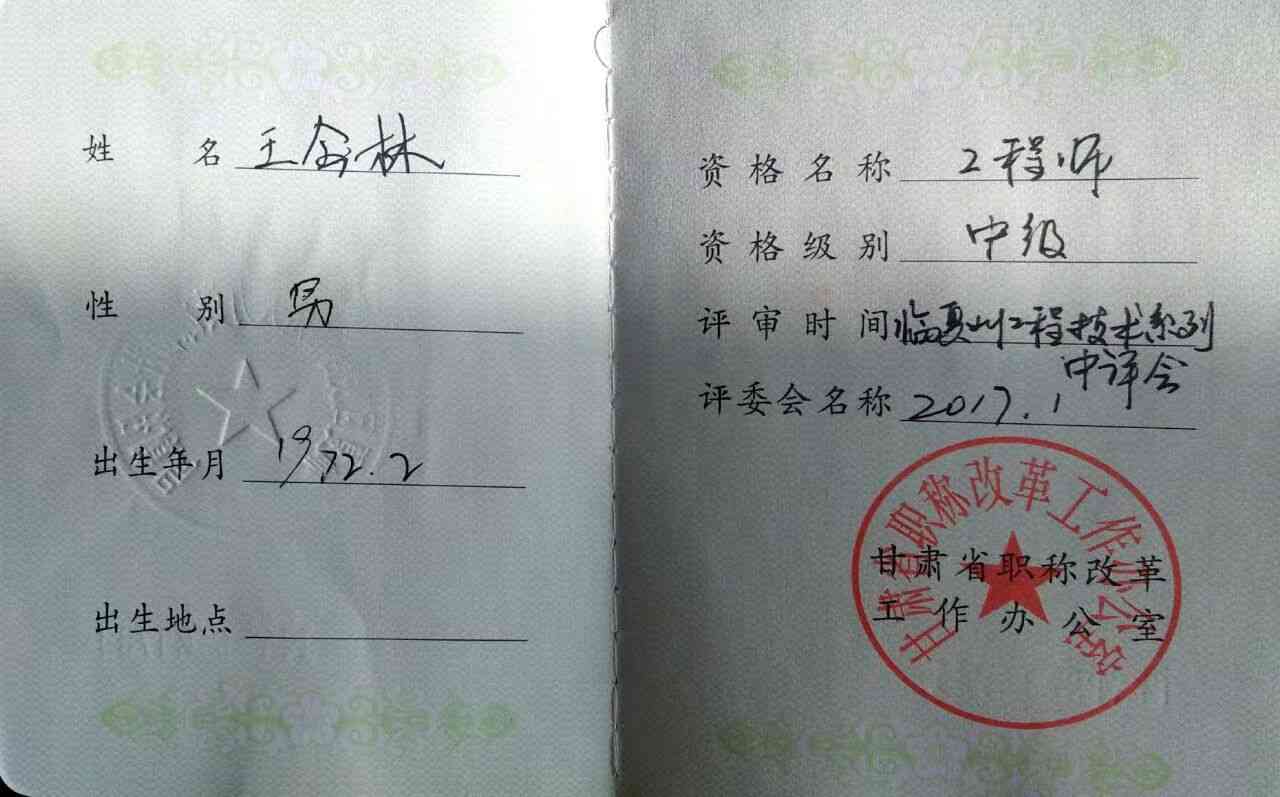 姓 名 王金林
性 别 男
出生年月 1972.2
出生地点
资格名称 工程师
资格级别 中级
评审时间 临夏州工程技术系列
中评会
评委会名称 2017.1
甘肃省职称改革工作办公室
甘肃省职称改革
工作办公室